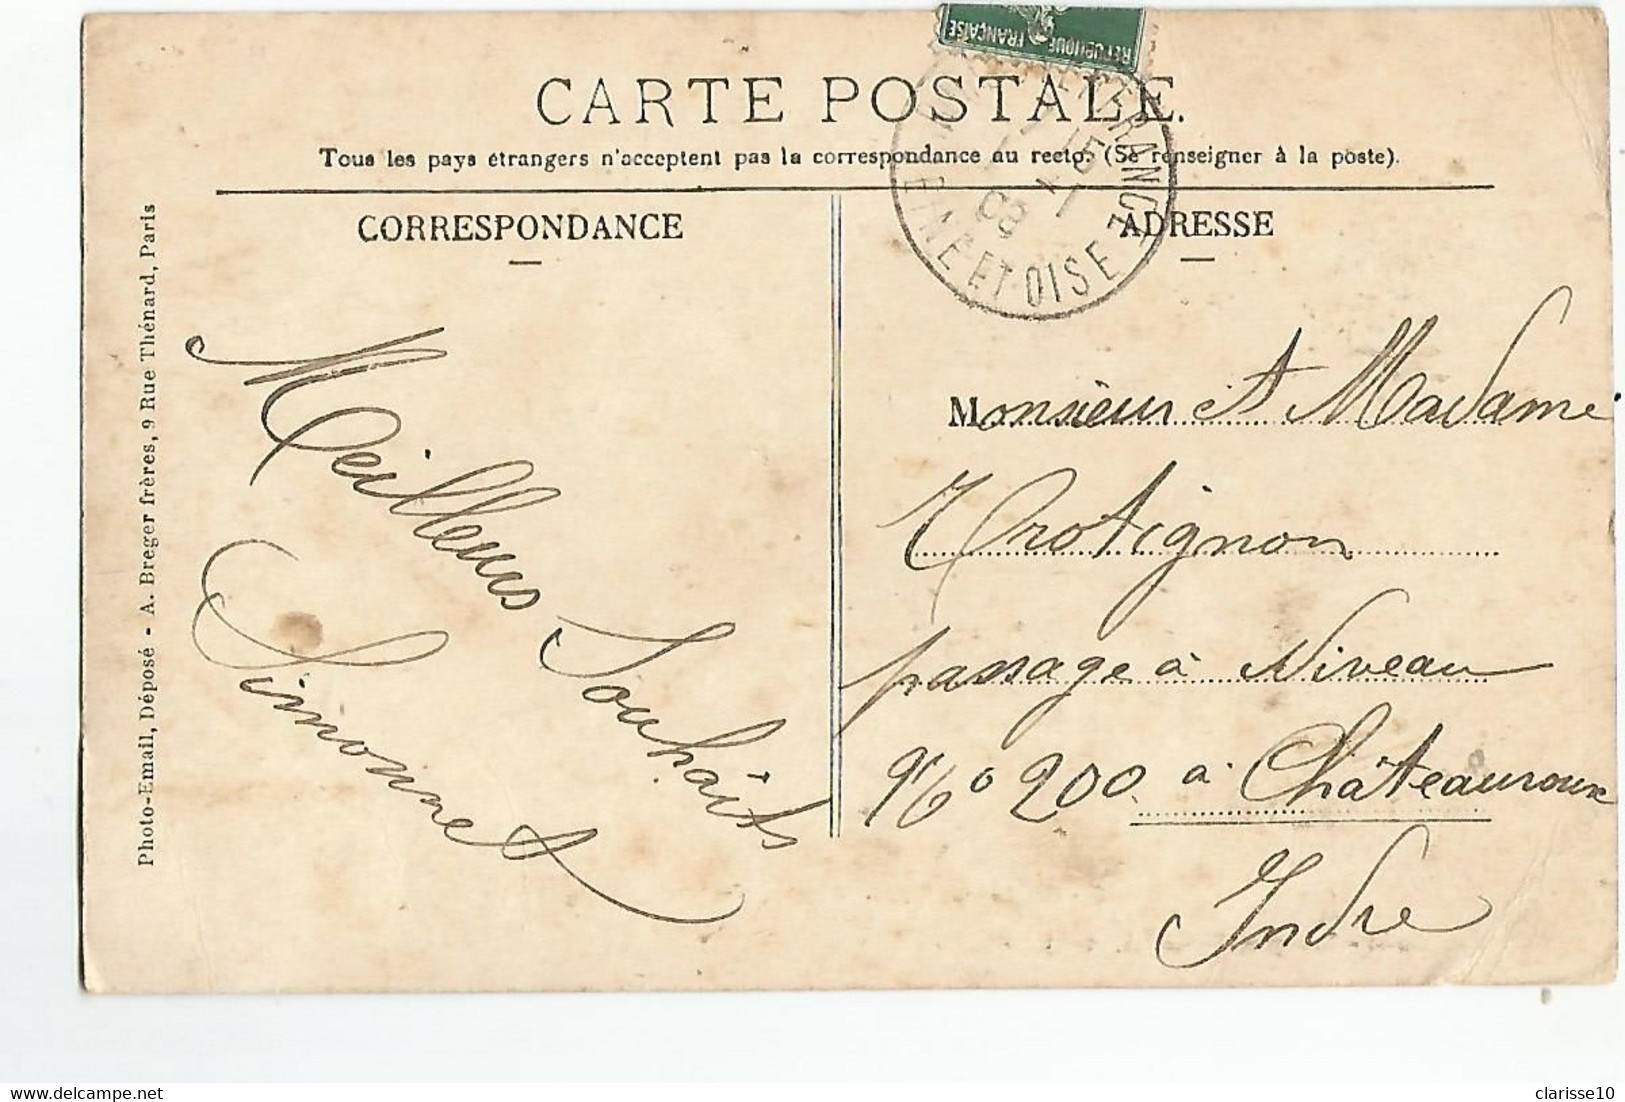 RÉPUBLIQUE FRANÇAISE
CARTE POSTALE.
Tous les pays étrangers n'acceptent pas la correspondance au recto. (Se renseigner à la poste).
CORRESPONDANCE
ADRESSE
ET OISE
08
Photo-Email, Déposé - A. Breger frères, 9 Rue Thénard, Paris
Meilleurs Souhaits
Simonnet
Monsieur et Madame
Trotignon
passage à Niveau
No 200 à Châteauroux
Indre
delcampe.net
clarisse10